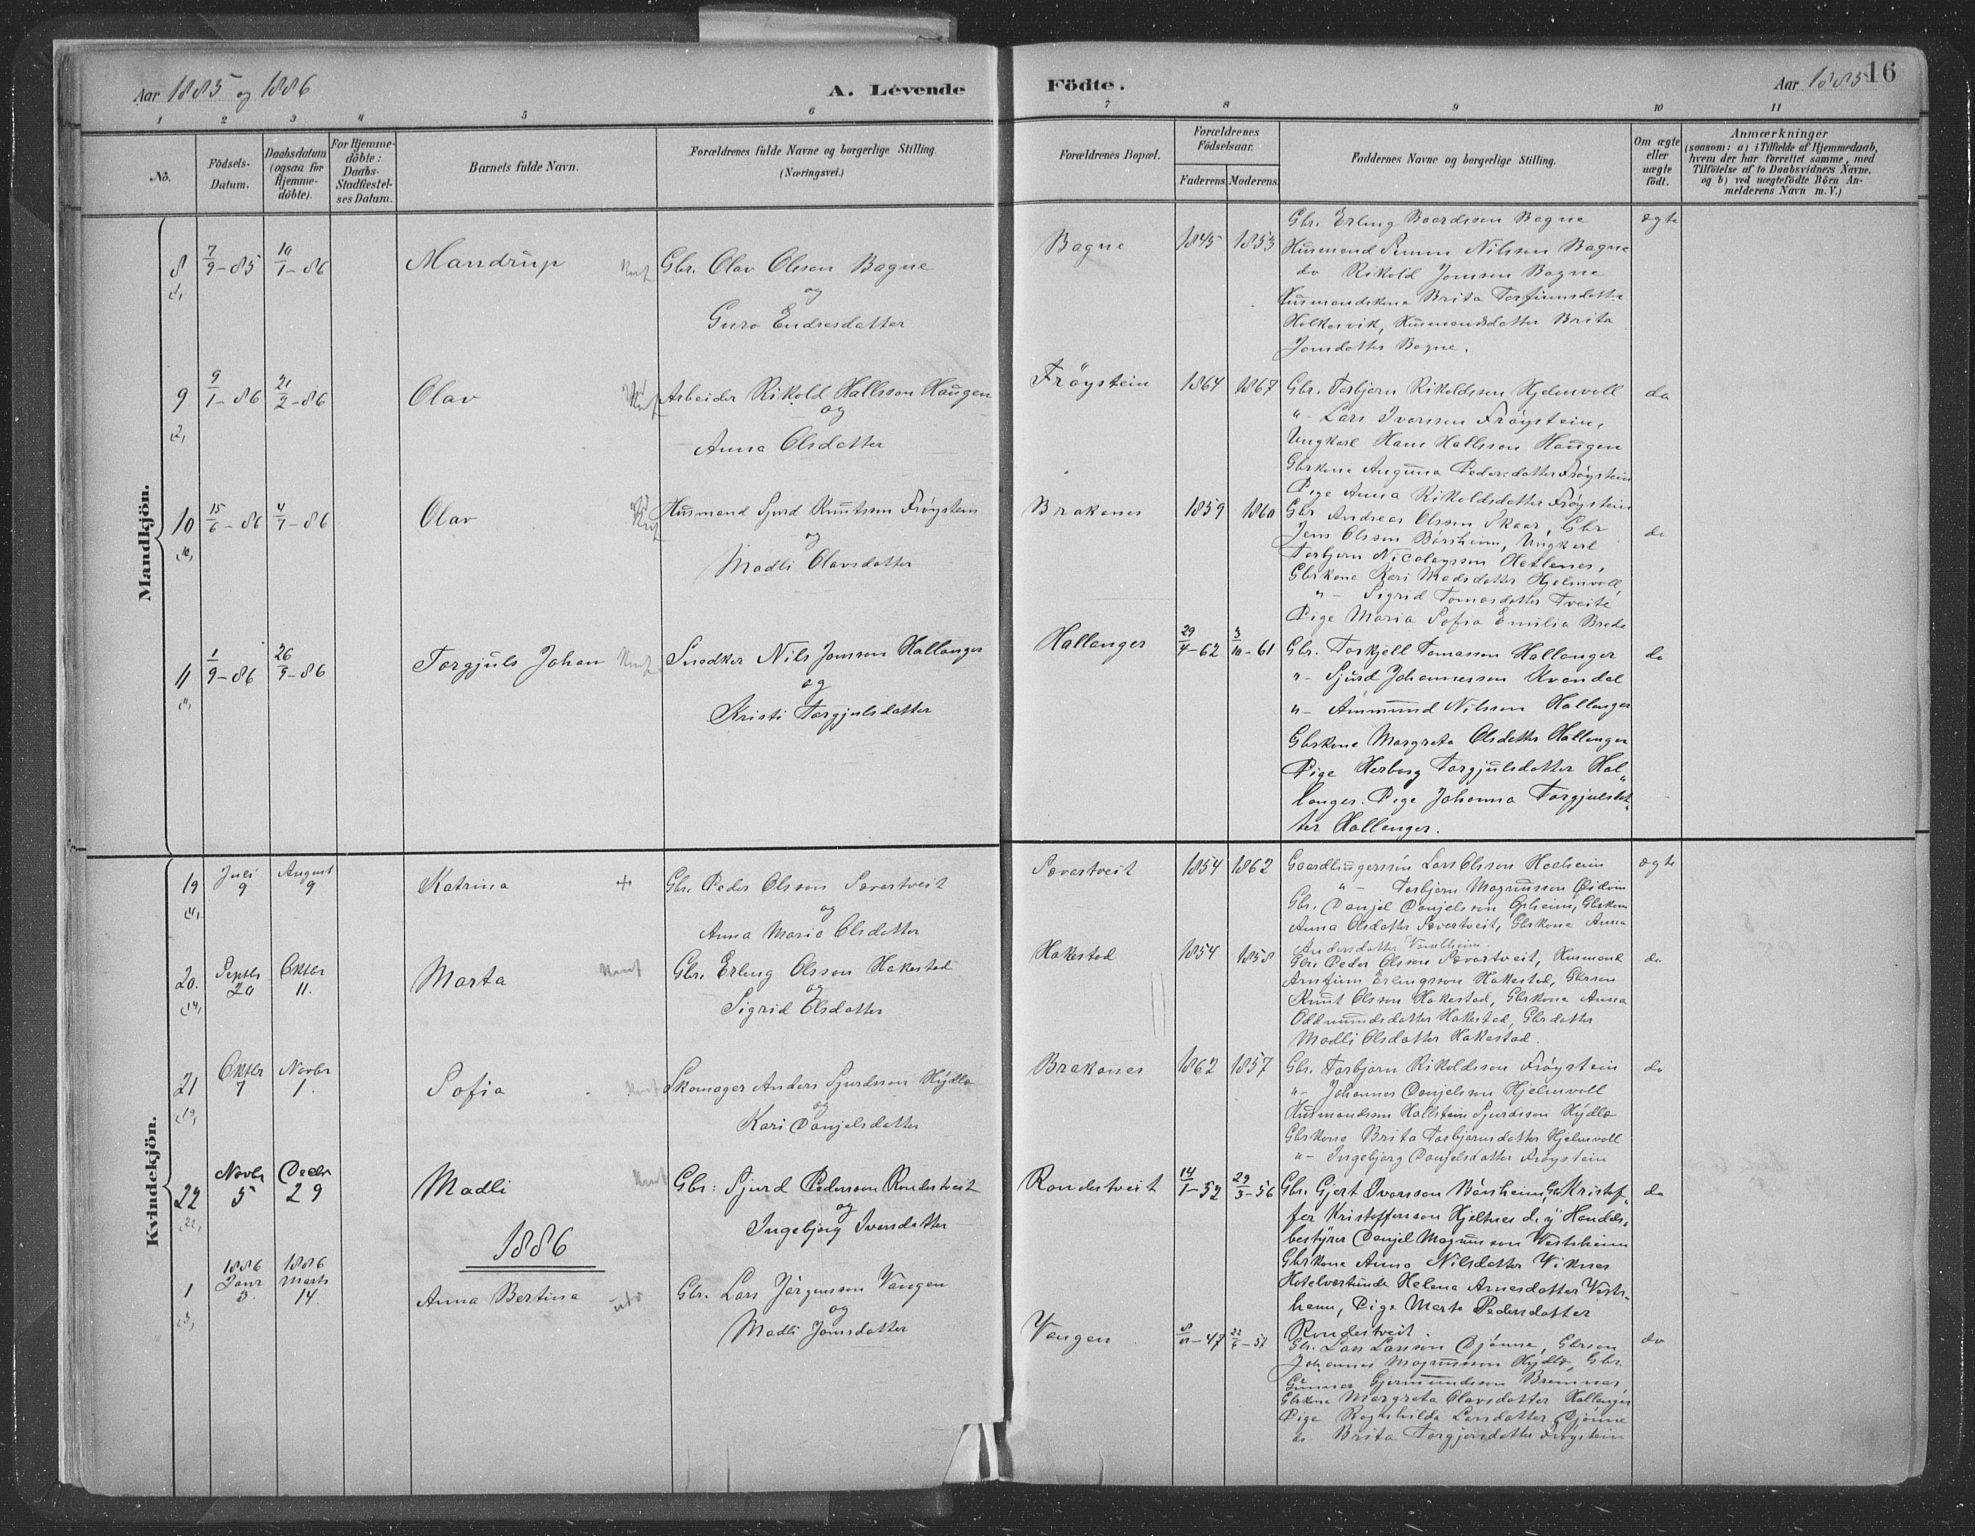 Aar 1885 og 1886
A. Levende
Födte.
Aar 1885
16
1 2 3 4 5 6 7 8 9 10 11
No.
Födsels-
Datum.
Daabsdatum
(ogsaa for
Hjemme-
döbte).
For Hjemme-
döbte:
Daabs-
Stadfæstel-
ses Datum.
Barnets fulde Navn.
Forældrenes fulde Navne og borgerlige Stilling.
(Næringsvei.)
Forældrenes Bopæl.
Forældrenes
Födselsaar.
Faderens.
Moderens.
Faddernes Navne og borgerlige Stilling.
Om ægte
eller
uægte
födt.
Anmærkninger
(saasom: a) i Tilfælde af Hjemmedaab,
hvem der har forrettet samme, med
Tilföielse af to Daabsvidners Navne,
og b) ved uægtefödte Börn An-
melderens Navn m. V.)
Mandkjön.
8 7/9-85 10/1-86 Mandrup Gbr. Olav Olsson Bagne
og
Guro Endresdatter
Bagne 1845 1853
Gbr. Erling Baardsson Bagne
Husmand Simon Nilsson Bagne
do Rikold Jonsson Bagne
Husmandskone Brita Torfinnsdatter
Holkesvik, Husmandsdatter Brita
Jonsdatter Bagne.
ægte
9 9/1-86 21/2-86 Olav Arbeider Rikold Hallsson Haugen
og
Anna Olsdatter
Fröystein 1864 1867
Gbr. Torbjörn Rikoldsson Hjelmvoll
"- Lars Ivarsson Fröystein,
Ungkarl Hans Hallsson Haugen
Gbrkone Anguna Pedersdatter Fröystein
Pige Anna Rikoldsdatter Fröystein
do
10 15/6-86 4/7-86 Olav Husmand Sjurd Knutsson Fröystein
og
Madli Olavsdatter
Brakanes 1859 1860
Gbr Andreas Olsson Skaar, Gbr
Jens Olsson Börsheim, Ungkarl
Torbjörn Nicolaysson Hetlenes,
Gbrkone Kari Madsdatter Hjelmvoll,
"- Sigrid Tomasdatter Tveite
Pige Maria Sofia Emilia Brede
do
11 1/9-86 26/9-86 Torgjuls Johan Snedker Nils Jonsson Hallanger
og
Kristi Torgjulsdatter
Hallanger 29/4-62 3/10-61
Gbr. Torkjell Tomasson Hallanger
"- Sjurd Johannesson Kvandal
"- Ammund Nilsson Hallanger
Gbrkone Margreta Olsdatter Hallanger
Pige Herborg Torgjulsdatter Hal-
langer. Pige Johanna Torgjulsdat-
ter Hallanger.
do
Kvindekjön.
19 Juli 9 August 9 Katrina + Gbr. Peder Olsson Sævertveit
og
Anna Maria Olsdatter
Sævertveit 1854 1862
Gaardbrugerssön Lars Olsson Haaheim
"- Torbjörn Magnusson Öidvin
Gbr. Danjel Danjelsson Opheim, Gbrkone
Anna Olsdatter Sævertveit, Gbrkone Anna
Andersdatter
ægte
20. Septbr 20 Oktbr 11. Marta Gbr. Erling Olsson Hakestad
og
Sigrid Olsdatter
Hakestad 1854 1858
Gbr. Peder Olsson Sævertveit, Husmand
Arnfinn Erlingsson Hakestad, Gbrsön
Knut Olsson Hakestad, Gbrkone Anna
Oddmundsdatter Hakestad, Gbrdatter
Madli Olsdatter Hakestad.
do
21 Oktbr 7 Novbr 1. Sofia Skomager Anders Sjurdsson Hydle
og
Kari Danjelsdatter
Brakanes 1862 1857
Gbr. Torbjörn Rikoldsson Fröystein
"- Johannes Danjelsson Hjelmvoll
Husmandssön Hallstein Sjurdsson Hydle
Gbrkone Brita Torbjörnsdatter Hjelmvoll
"- Ingebjorg Danjelsdatter Fröystein
do
22 Novbr 5 Decbr 29 Madli Gbr: Sjurd Pedersson Rondestveit
og
Ingebjorg Iversdatter
Rondestveit 14/1-52 29/3-56
Gbr. Gjert Ivarsson Börsheim, Gbr Kristof-
fer Kristoffersson Hjeltnes d.y. Handels-
bestyrer Danjel Magnusson Vestrheim
Gbrkone Anna Nilsdatter Viknes
Hotelvertinde Helena Arnesdatter Vestr-
heim, Pige Marta Pedersdatter
Rondestveit.
do
1886
1 1886 Janr 3. 1886 Marts 14. Anna Bertina Gbr. Lars Jörgensson Vangen
og
Madli Jonsdatter
Vangen 47 57
Gbr. Lars Larsson Djönne, Gbrsön
Johannes Magnusson Hydle, Gbr.
Gunnar Gjermundsson Bremnes,
Gbrkone Margreta Olavsdatter Hallanger
Pige Ragnhilda Larsdatter Djönne
do. Brita Torgjersdatter Fröystein
do